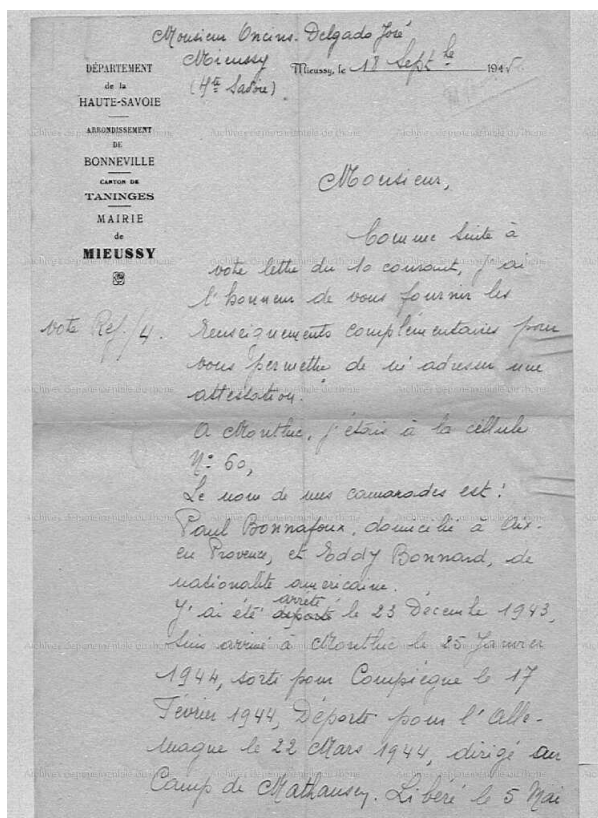 Monsieur Oncins-Delgado José
Mieussy
(Hte Savoie)
DÉPARTEMENT
de la
HAUTE-SAVOIE
ARRONDISSEMENT
DE
BONNEVILLE
CANTON DE
TANINGES
MAIRIE
de
MIEUSSY
Mieussy, le 18 Septbre 1945
Monsieur,
Comme suite à
vote lettre du 10 courant, j'ai
l'honneur de vous fournir les
vote Ref/4.
renseignements complémentaires pour
vous permettre de m'adresser une
attestation.
A Montluc, j'étais à la céllule
N° 60,
Le nom de mes camarades est :
Paul Bonnafoux, domicilié à Aix-
en Provence, et Eddy Bonnard, de
nationalité américaine.
J'ai été déporté arrêté le 23 Décembre 1943,
suis arrivé à Montluc le 25 Janvier
1944, sorti pour Compiègne le 17
Février 1944, Déporté pour l'Alle-
magne le 22 Mars 1944, dirigé au
Camp de Mathausen. Libéré le 5 Mai